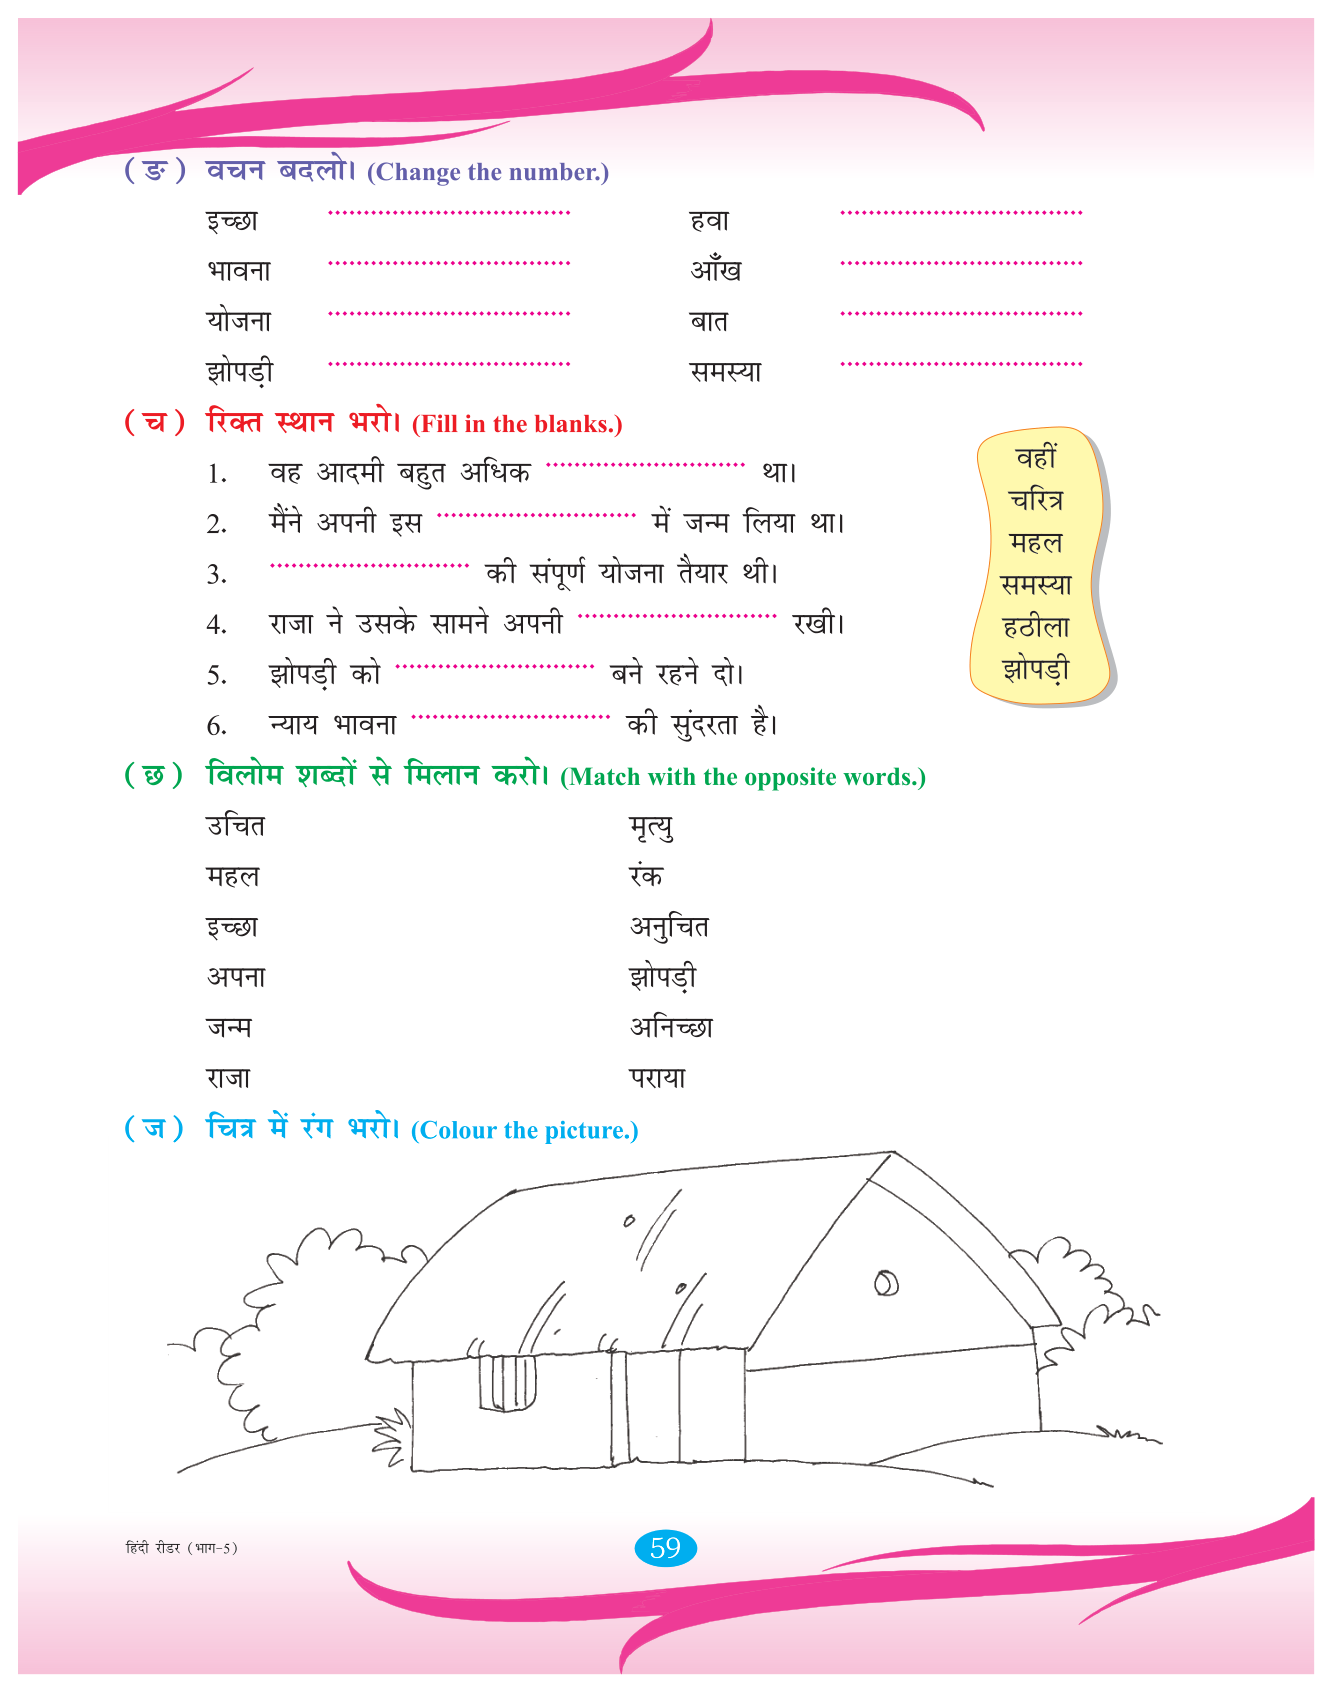 (ङ) वचन बदलो। (Change the number.)
इच्छा ................................ हवा ................................
भावना ................................ आँख ................................
योजना ................................ बात ................................
झोपड़ी ................................ समस्या ................................
(च) रिक्त स्थान भरो। (Fill in the blanks.)
1. वह आदमी बहुत अधिक ........................... था।
2. मैंने अपनी इस ........................... में जन्म लिया था।
3. ........................... की संपूर्ण योजना तैयार थी।
4. राजा ने उसके सामने अपनी ........................... रखी।
5. झोपड़ी को ........................... बने रहने दो।
6. न्याय भावना ........................... की सुंदरता है।
वहीं
चरित्र
महल
समस्या
हठीला
झोपड़ी
(छ) विलोम शब्दों से मिलान करो। (Match with the opposite words.)
उचित मृत्यु
महल रंक
इच्छा अनुचित
अपना झोपड़ी
जन्म अनिच्छा
राजा पराया
(ज) चित्र में रंग भरो। (Colour the picture.)
हिंदी रीडर (भाग-5)
59